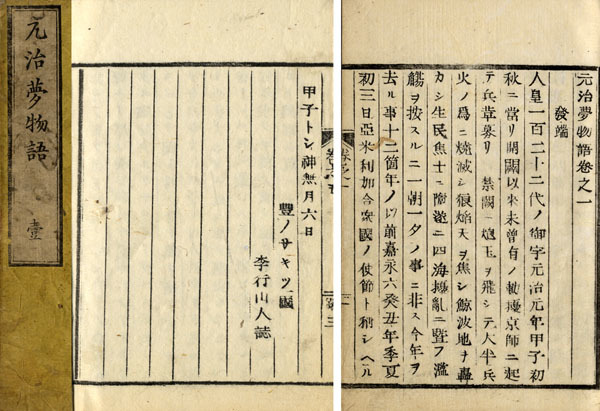 元治夢物語巻之一
發端
人皇一百二十二代ノ御宇元治元年甲子初
秋ニ當リ開闢以来未曾有ノ動擾京師ニ起
テ兵革募リ　禁闕ニ炮玉ヲ飛シテ大半兵
火ノ為ニ焼滅シ狼焔天ヲ焦シ鯨波地ヲ轟
カシ生民焦土ニ陥遂ニ四海擾亂ニ曁フ濫
觴ヲ按スルニ一朝一夕ノ事ニ非ス今年ヲ
去ル事十二箇年ノ以前嘉永六癸丑年季夏
初三日亞米利加合衆國ノ使節ト称シヘル
甲子トシ神無月六日
豐ノサキツ國
李行山人誌
元治夢物語 壹